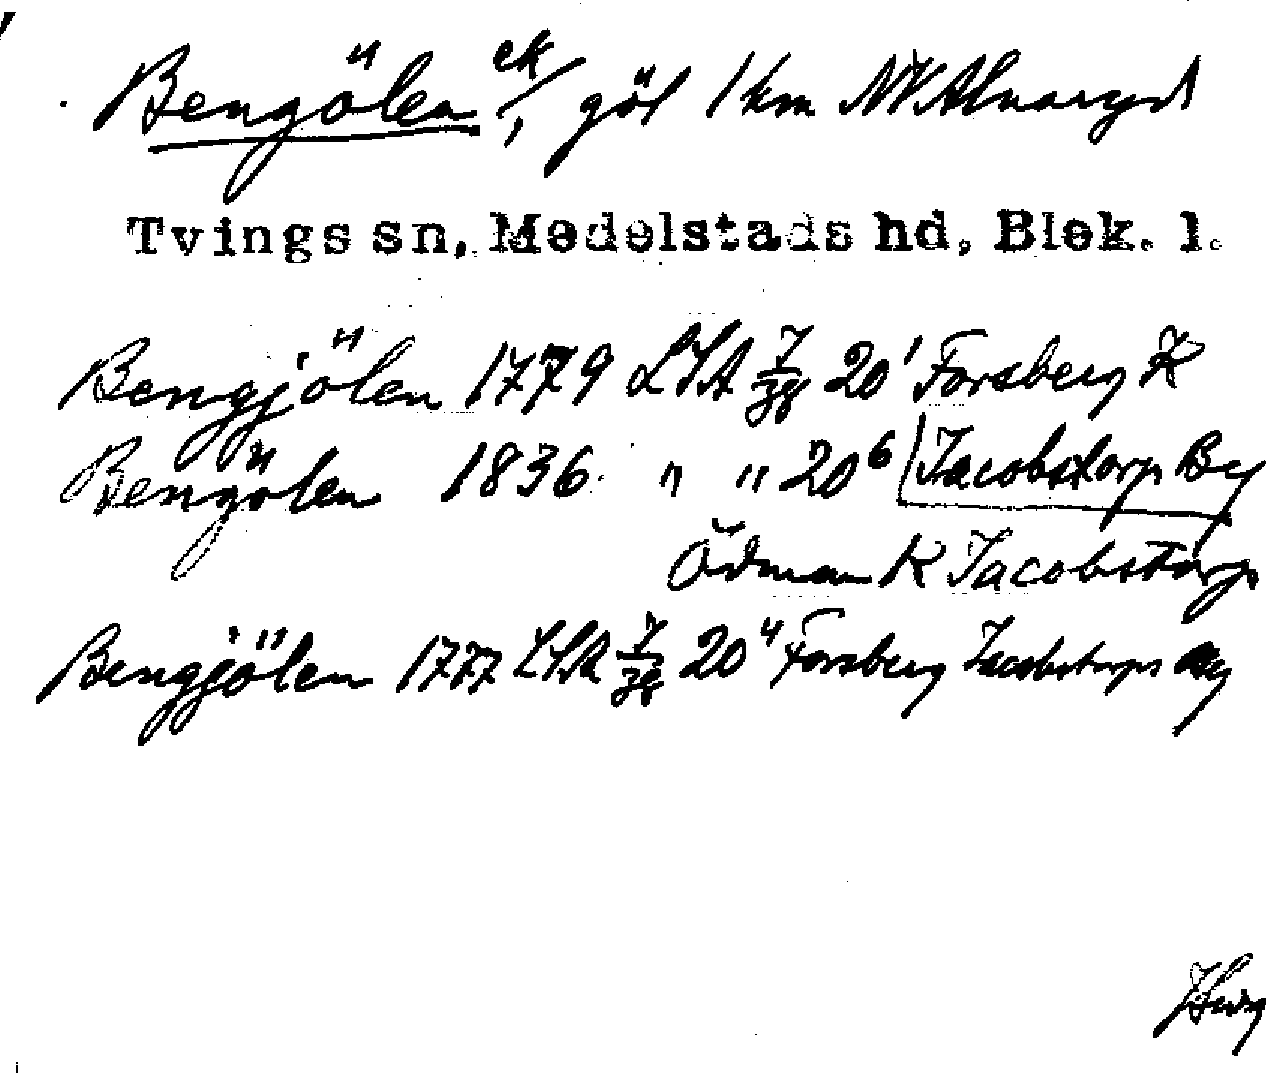 Bengölen ek/, göl 1 km NV Alnaryd
Tvings sn, Medelstads hd, Blek. l.
Bengjölen 1779 LSA 7/38 20¹ Forsberg K
Bengölen 1836 " " 20⁶ Jacobstorp By
Ödman K Jacobstorp
Bengjölen 1777 LSA 7/38 20⁴ Forsberg Jacobstorps By